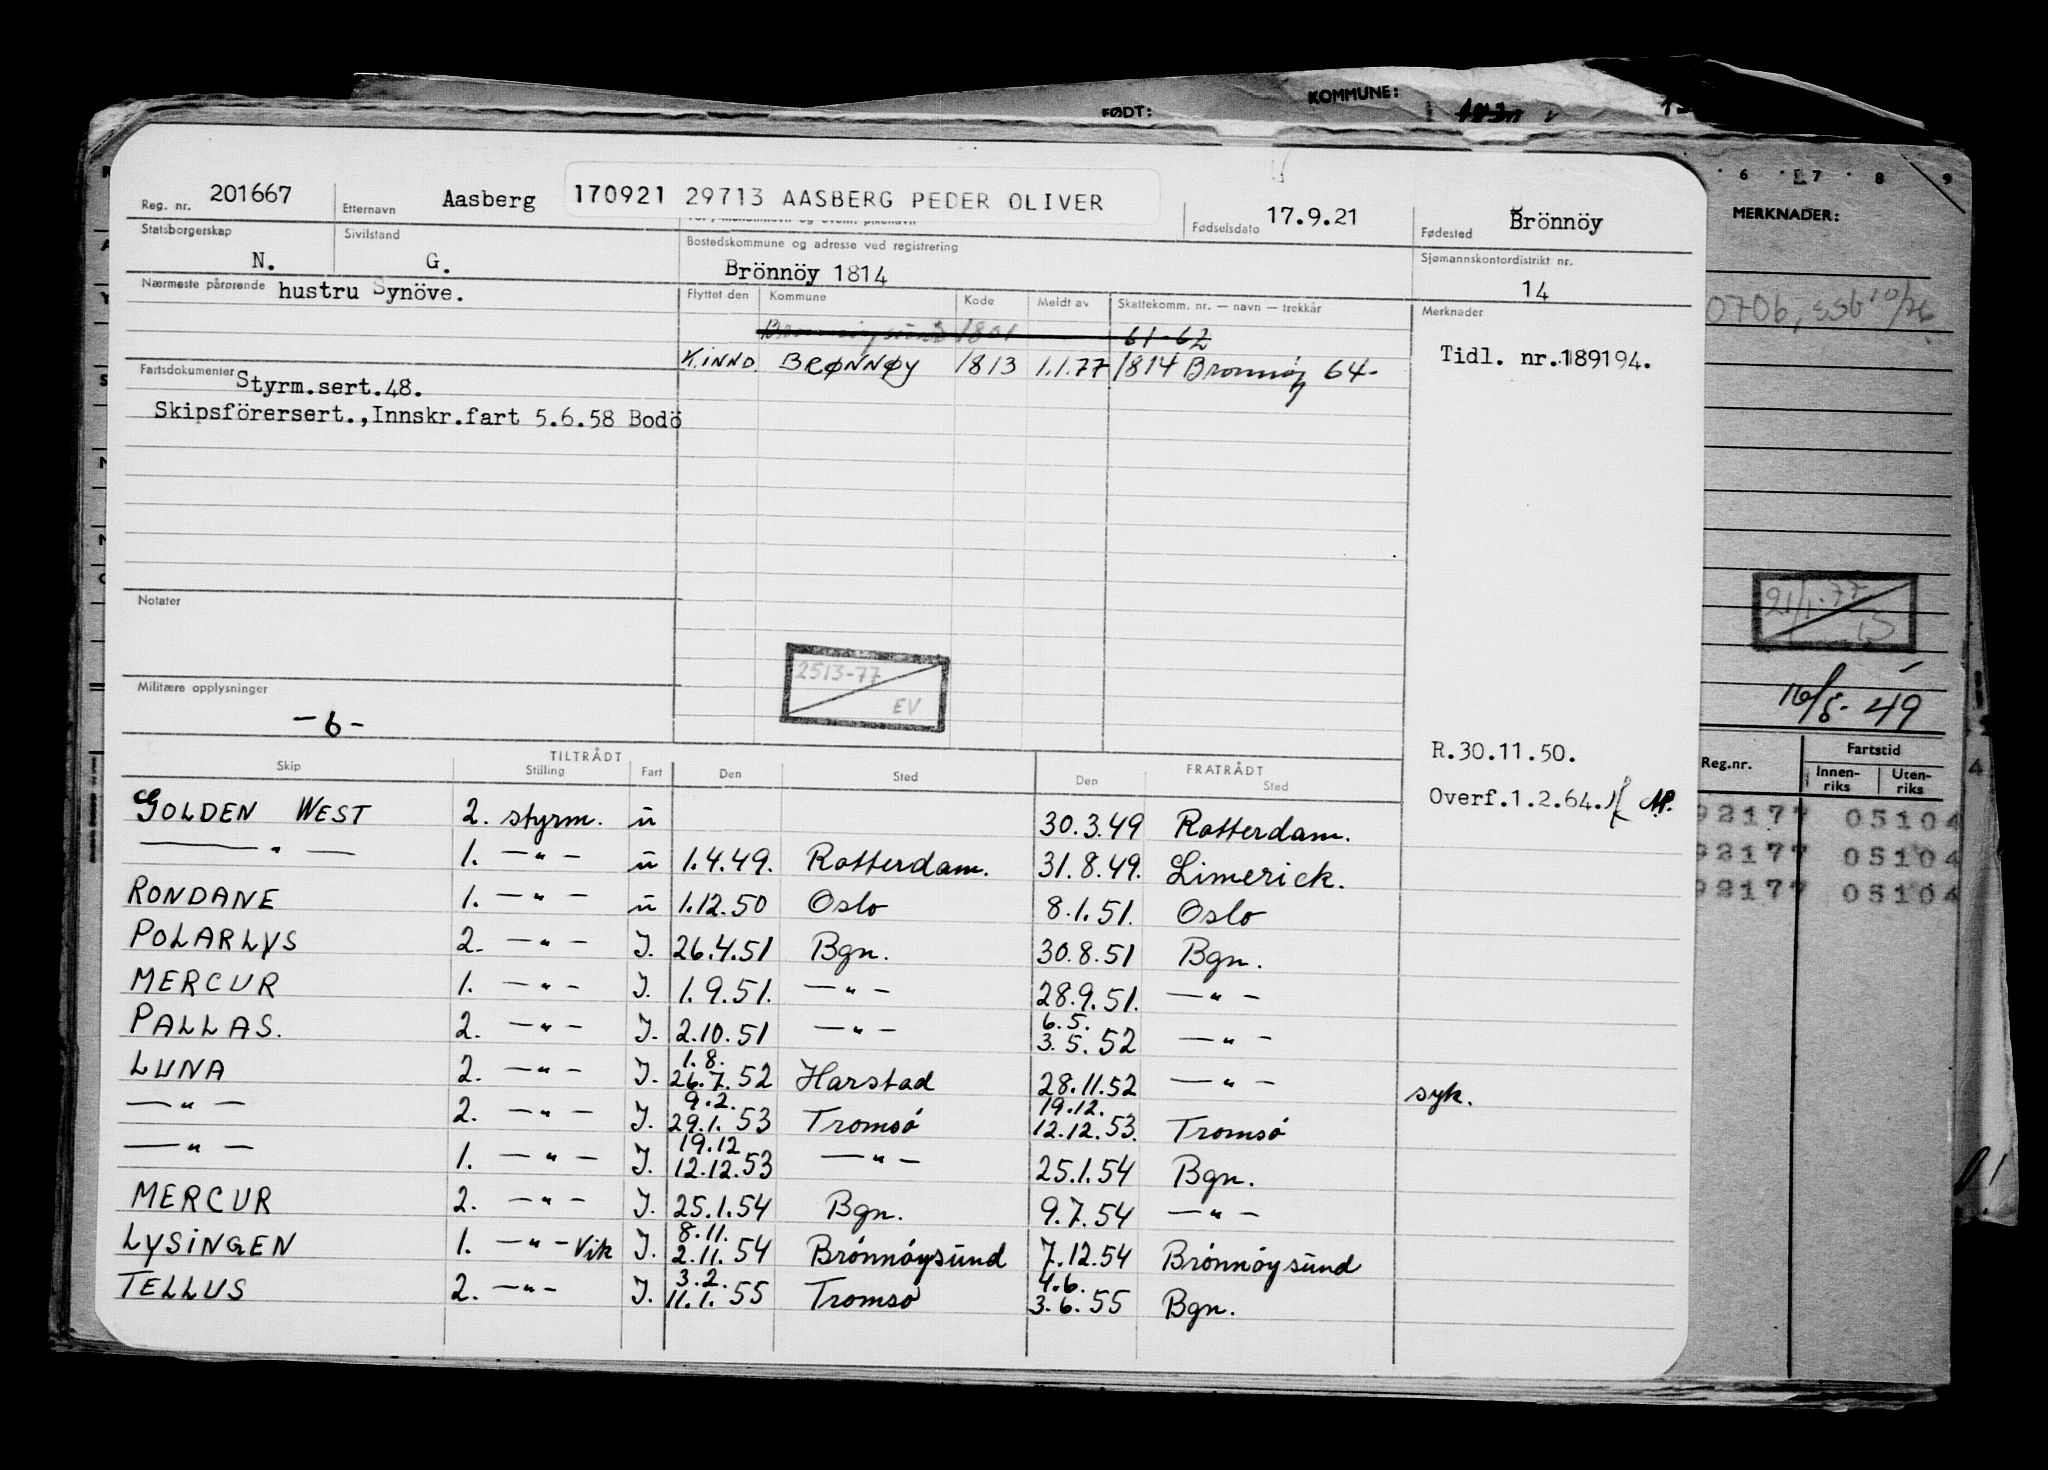 FØDT: KOMMUNE:
6 7 8 9
MERKNADER:
Reg. nr. 201667 Etternavn Aasberg 170921 29713 AASBERG PEDER OLIVER Fødselsdato 17.9.21 Fødested Brönnöy
Statsborgerskap N. Sivilstand G. Bostedskommune og adresse ved registrering Brönnöy 1814 Sjømannskontordistrikt nr. 14
Nærmeste pårørende hustru Synöve.
Flyttet den Kommune Kode Meldt av Skattekomm. nr. — navn — trekkår Merknader
61-62
K.INND. BRØNNØY 1813 1.1.77 1814 Brønnøy 64-
Tidl. nr.189194.
Fartsdokumenter Styrm.sert.48.
Skipsförersert.,Innskr.fart 5.6.58 Bodö
Notater
2513-77
EV
21/1-77
Militære opplysninger
-6-
16/8-49
R.30.11.50.
Overf.1.2.64.
TILTRÅDT FRATRÅDT
Skip Stilling Fart Den Sted Den Sted
GOLDEN WEST 2. styrm. u 30.3.49 Rotterdam.
—"— 1. —"— u 1.4.49. Rotterdam. 31.8.49. Limerick.
RONDANE 1. —"— u 1.12.50 Oslo 8.1.51. Oslo
POLARLYS 2. —"— J. 26.4.51 Bgn. 30.8.51 Bgn.
MERCUR 1. —"— J. 1.9.51. —"— 28.9.51. —"—
6.5.
PALLAS. 2. —"— J. 2.10.51 —"— 3.5.52 —"—
1.8.
LUNA 2. —"— J. 26.7.52 Harstad 28.11.52 —"— syk.
9.2. 19.12.
—"— 2. —"— J. 29.1.53 Tromsö 12.12.53. Tromsö
19.12
—"— 1. —"— J. 12.12.53 —"— 25.1.54 Bgn.
MERCUR 2. —"— J. 25.1.54 Bgn. 9.7.54 —"—
8.11.
LYSINGEN 1. —"— Vik J. 2.11.54 Brönnöysund 7.12.54 Brönnöysund
3.2. 4.6.
TELLUS 2. —"— J. 11.1.55 Tromsö 3.6.55 Bgn.
Reg.nr. Fartstid
Innen-riks Uten-riks
92177 05104
92177 05104
92177 05104